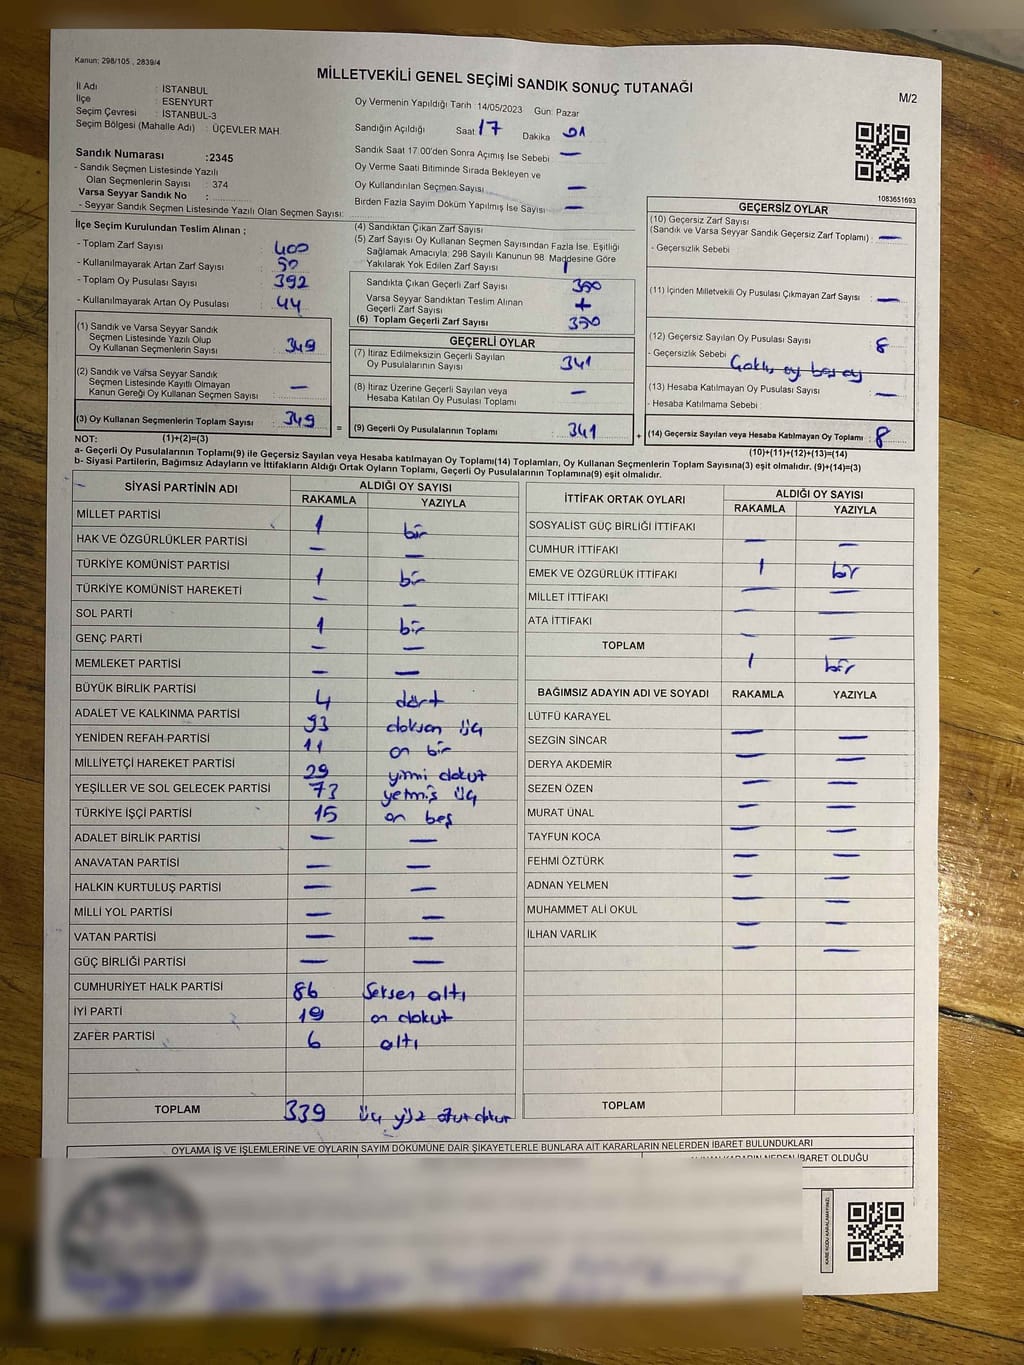 Kanun: 298/105 , 2839/4
MİLLETVEKİLİ GENEL SEÇİMİ SANDIK SONUÇ TUTANAĞI
M/2
İl Adı : İSTANBUL
İlçe : ESENYURT
Seçim Çevresi : İSTANBUL-3
Seçim Bölgesi (Mahalle Adı) : ÜÇEVLER MAH.
Sandık Numarası :2345
- Sandık Seçmen Listesinde Yazılı
Olan Seçmenlerin Sayısı : 374
Varsa Seyyar Sandık No :
- Seyyar Sandık Seçmen Listesinde Yazılı Olan Seçmen Sayısı:
Oy Vermenin Yapıldığı Tarih : 14/05/2023 Gün: Pazar
Sandığın Açıldığı Saat 17 Dakika 01
Sandık Saat 17.00'den Sonra Açımış İse Sebebi —
Oy Verme Saati Bitiminde Sırada Bekleyen ve
Oy Kullandırılan Seçmen Sayısı —
Birden Fazla Sayım Döküm Yapılmış İse Sayısı —
1083651693
İlçe Seçim Kurulundan Teslim Alınan ;
- Toplam Zarf Sayısı : 400
- Kullanılmayarak Artan Zarf Sayısı : 50
- Toplam Oy Pusulası Sayısı : 392
- Kullanılmayarak Artan Oy Pusulası : 44
(1) Sandık ve Varsa Seyyar Sandık
Seçmen Listesinde Yazılı Olup
Oy Kullanan Seçmenlerin Sayısı : 349
(2) Sandık ve Varsa Seyyar Sandık
Seçmen Listesinde Kayıtlı Olmayan
Kanun Gereği Oy Kullanan Seçmen Sayısı : —
(3) Oy Kullanan Seçmenlerin Toplam Sayısı : 349
(4) Sandıktan Çıkan Zarf Sayısı :
(5) Zarf Sayısı Oy Kullanan Seçmen Sayısından Fazla İse, Eşitliği
Sağlamak Amacıyla; 298 Sayılı Kanunun 98. Maddesine Göre
Yakılarak Yok Edilen Zarf Sayısı : 1
Sandıkta Çıkan Geçerli Zarf Sayısı : 350
Varsa Seyyar Sandıktan Teslim Alınan
Geçerli Zarf Sayısı : +
(6) Toplam Geçerli Zarf Sayısı : 350
GEÇERLİ OYLAR
(7) İtiraz Edilmeksizin Geçerli Sayılan
Oy Pusulalarının Sayısı : 341
(8) İtiraz Üzerine Geçerli Sayılan veya
Hesaba Katılan Oy Pusulası Toplamı : —
= (9) Geçerli Oy Pusulalarının Toplamı : 341
GEÇERSİZ OYLAR
(10) Geçersiz Zarf Sayısı
(Sandık ve Varsa Seyyar Sandık Geçersiz Zarf Toplamı) : —
- Geçersizlik Sebebi :
(11) İçinden Milletvekili Oy Pusulası Çıkmayan Zarf Sayısı : —
(12) Geçersiz Sayılan Oy Pusulası Sayısı : 8
- Geçersizlik Sebebi :
(13) Hesaba Katılmayan Oy Pusulası Sayısı : —
- Hesaba Katılmama Sebebi :
+ (14) Geçersiz Sayılan veya Hesaba Katılmayan Oy Toplamı : 8
NOT: (1)+(2)=(3)
(10)+(11)+(12)+(13)=(14)
a- Geçerli Oy Pusulalarının Toplamı(9) ile Geçersiz Sayılan veya Hesaba katılmayan Oy Toplamı(14) Toplamları, Oy Kullanan Seçmenlerin Toplam Sayısına(3) eşit olmalıdır. (9)+(14)=(3)
b- Siyasi Partilerin, Bağımsız Adayların ve İttifakların Aldığı Ortak Oyların Toplamı, Geçerli Oy Pusulalarının Toplamına(9) eşit olmalıdır.
SİYASİ PARTİNİN ADI
ALDIĞI OY SAYISI
RAKAMLA YAZIYLA
MİLLET PARTİSİ 1 bir
HAK VE ÖZGÜRLÜKLER PARTİSİ — —
TÜRKİYE KOMÜNİST PARTİSİ 1 bir
TÜRKİYE KOMÜNİST HAREKETİ — —
SOL PARTİ 1 bir
GENÇ PARTİ — —
MEMLEKET PARTİSİ — —
BÜYÜK BİRLİK PARTİSİ 4 dört
ADALET VE KALKINMA PARTİSİ 93 doksan üç
YENİDEN REFAH PARTİSİ 11 on bir
MİLLİYETÇİ HAREKET PARTİSİ 29 yirmi dokuz
YEŞİLLER VE SOL GELECEK PARTİSİ 73 yetmiş üç
TÜRKİYE İŞÇİ PARTİSİ 15 on beş
ADALET BİRLİK PARTİSİ — —
ANAVATAN PARTİSİ — —
HALKIN KURTULUŞ PARTİSİ — —
MİLLİ YOL PARTİSİ — —
VATAN PARTİSİ — —
GÜÇ BİRLİĞİ PARTİSİ — —
CUMHURİYET HALK PARTİSİ 86 Seksen altı
İYİ PARTİ 19 on dokuz
ZAFER PARTİSİ 6 altı
TOPLAM 339 üç yüz otuz dokuz
İTTİFAK ORTAK OYLARI
ALDIĞI OY SAYISI
RAKAMLA YAZIYLA
SOSYALİST GÜÇ BİRLİĞİ İTTİFAKI — —
CUMHUR İTTİFAKI
EMEK VE ÖZGÜRLÜK İTTİFAKI 1 bir
MİLLET İTTİFAKI — —
ATA İTTİFAKI — —
TOPLAM 1 bir
BAĞIMSIZ ADAYIN ADI VE SOYADI RAKAMLA YAZIYLA
LÜTFÜ KARAYEL — —
SEZGİN SİNCAR — —
DERYA AKDEMİR — —
SEZEN ÖZEN — —
MURAT ÜNAL — —
TAYFUN KOCA — —
FEHMİ ÖZTÜRK — —
ADNAN YELMEN — —
MUHAMMET ALİ OKUL — —
İLHAN VARLIK — —
TOPLAM
OYLAMA İŞ VE İŞLEMLERİNE VE OYLARIN SAYIM DÖKÜMÜNE DAİR ŞİKAYETLERLE BUNLARA AİT KARARLARIN NELERDEN İBARET BULUNDUKLARI
KARARIN NEDEN İBARET OLDUĞU
KARE KODU KARALAMAYINIZ